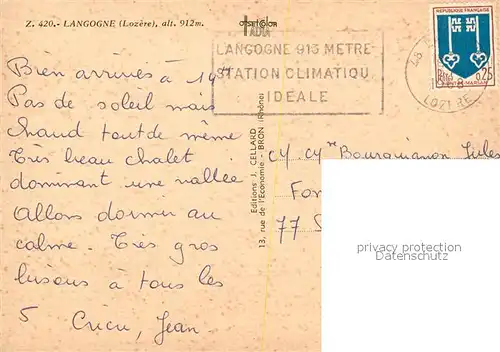 Z. 420.- LANGOGNE (Lozère), alt. 912m.
LANGOGNE 913 METRE
STATION CLIMATIQU
IDEALE
REPUBLIQUE FRANÇAISE
0,25
LOZERE
Bien arrivés à 19H
Pas de soleil mais
chaud tout de même
Très beau chalet
dominant une vallée
Allons dormir au
calme. Très gros
bisous à tous les
5 Cricu, Jean
Editions J. CELLARD
13, rue de l'Economie - BRON (Rhône)
Bourguignon Jules
Fon
77 S
privacy protection
Datenschutz